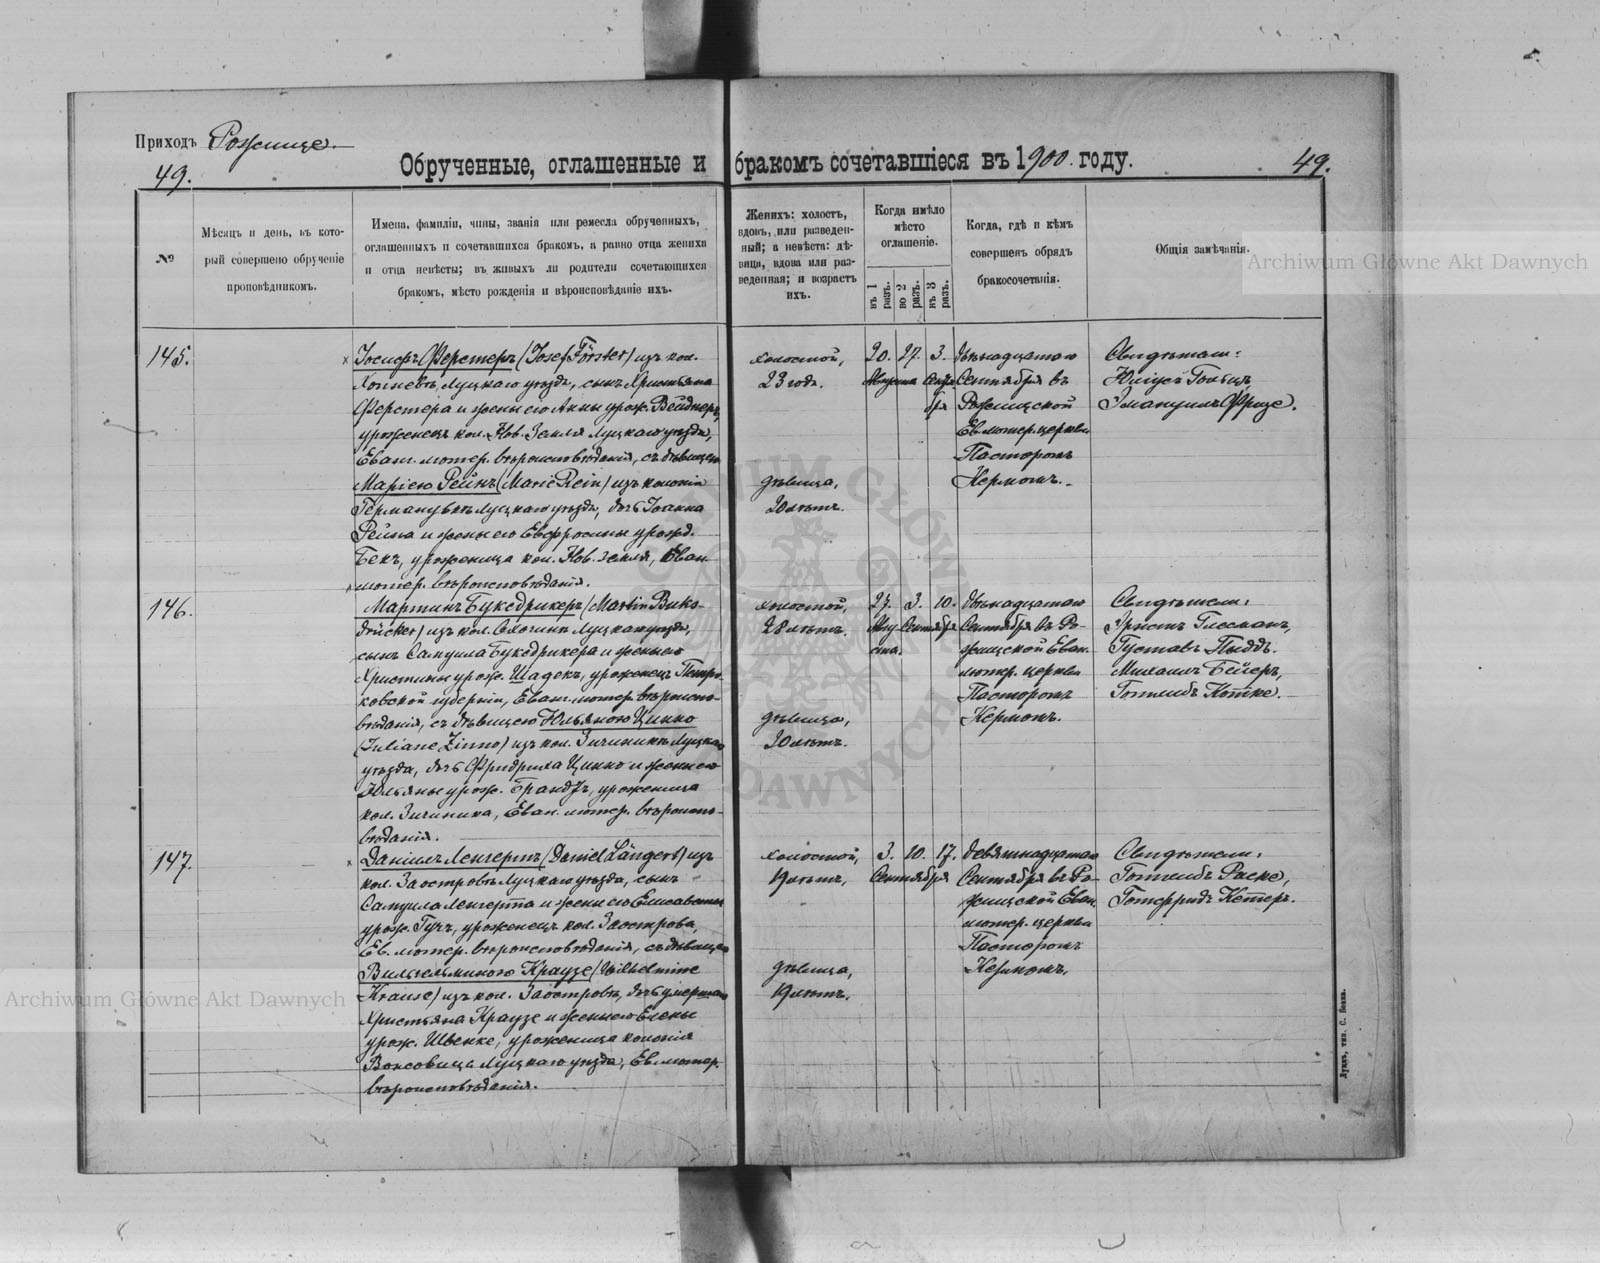 Приходъ Рожище.
49.
Обрученные, оглашенные и бракомъ сочетавшіеся въ 1900. году.
49.
№
Мѣсяцъ и день, въ кото-
рый совершено обрученіе
проповѣдникомъ.
Имена, фамиліи, чины, званія или ремесла обрученныхъ,
оглашенныхъ и сочетавшихся бракомъ, а равно отца жениха
и отца невѣсты; въ живыхъ ли родители сочетающихся
бракомъ, мѣсто рожденія и вѣроисповѣданіе ихъ.
Женихъ: холостъ,
вдовъ, или разведен-
ный; а невѣста: дѣ-
вица, вдова или раз-
веденная; и возрастъ
ихъ.
Когда имѣло
мѣсто
оглашеніе.
въ 1 разъ.
во 2 разъ.
въ 3 разъ.
Когда, гдѣ и кѣмъ
совершенъ обрядъ
бракосочетанія.
Общія замѣчанія.
Archiwum Główne Akt Dawnych
145.
Іосифъ Ферстеръ (Josef Förster) изъ кол.
Луцкаго уѣзда, сынъ Христьяна
Ферстера и жены его Анны урож. Вейднеръ,
уроженецъ кол. Нов. Земля Луцкаго уѣзда,
Еванг. лютер. вѣроисповѣданія, съ дѣвицею
Маріею Рейнъ (Marie Rein) изъ колоніи
Луцкаго уѣзда, дочь Іоанна
Рейна и жены его Евфросины урожд.
Бекъ, уроженица кол. Нов. Земля, Еван.
лютер. вѣроисповѣданія.
холостой,
23 года.
дѣвица,
20 лѣтъ.
20. 27. 3.
Августа Сентя
бря
двѣнадцатаго
Сентября въ
Рожищской
Ев. лютер. церкви
Пасторомъ
Кермомъ.
Свидѣтели:
Юліусъ Гольцъ,
Эмануилъ Фризе.
146.
Мартинъ Буксдрикеръ (Martin Buks-
drücker) изъ кол. Луцкаго уѣзда,
сынъ Самуила Буксдрикера и жены его
Христины урож. Шадекъ, уроженецъ Петро-
ковской губерніи, Еванг. лютер. вѣроиспо-
вѣданія, съ дѣвицею Юльяною Цинно
(Juliane Zinno) изъ кол. Луцкаго
уѣзда, дочь Фридриха Цинно и жены его
Юльяны урож. Брандтъ, уроженица
кол. Еван. лютер. вѣроиспо-
вѣданія.
холостой,
28 лѣтъ.
дѣвица,
20 лѣтъ.
27. 3. 10.
Авгу Сентября
ста.
двѣнадцатаго
Сентября въ Ро-
жищской Еван.
лютер. церкви
Пасторомъ
Кермомъ.
Свидѣтели:
Эрнстъ Глесманъ,
Густавъ Пыддъ.
Михаилъ Бейеръ,
Готлибъ Коттке.
147.
Даніилъ Ленгертъ (Daniel Längert) изъ
кол. Заостровъ Луцкаго уѣзда, сынъ
Самуила Ленгерта и жены его Елисаветы
урож. Гучъ, уроженецъ кол. Заострова,
Ев. лютер. вѣроисповѣданія, съ дѣвицею
Вильгельминою Краузе (Wilhelmine
Krause) изъ кол. Заостровъ, дочь умершаго
Христьяна Краузе и жены его Елены
урож. Швенке, уроженица колоніи
Луцкаго уѣзда, Ев. лютер.
вѣроисповѣданія.
холостой,
19 лѣтъ,
дѣвица,
19 лѣтъ.
3. 10. 17.
Сентября
девятнадцатаго
Сентября въ Ро-
жищской Еван.
лютер. церкви
Пасторомъ
Кермомъ.
Свидѣтели:
Готлибъ Раске,
Готфридъ Кетеръ.
Archiwum Główne Akt Dawnych